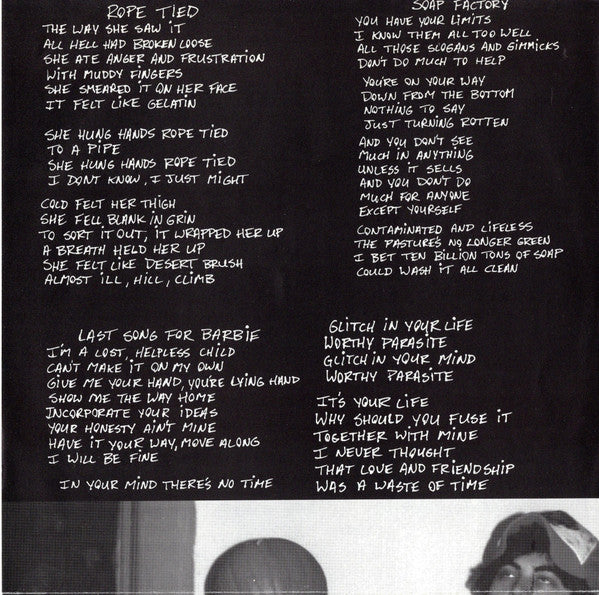 ROPE TIED
THE WAY SHE SAW IT
ALL HELL HAD BROKEN LOOSE
SHE ATE ANGER AND FRUSTRATION
WITH MUDDY FINGERS
SHE SMEARED IT ON HER FACE
IT FELT LIKE GELATIN
SHE HUNG HANDS ROPE TIED
TO A PIPE
SHE HUNG HANDS ROPE TIED
I DONT KNOW, I JUST MIGHT
COLD FELT HER THIGH
SHE FELL BLANK IN GRIN
TO SORT IT OUT, IT WRAPPED HER UP
A BREATH HELD HER UP
SHE FELT LIKE DESERT BRUSH
ALMOST ILL, HILL, CLIMB
SOAP FACTORY
YOU HAVE YOUR LIMITS
I KNOW THEM ALL TOO WELL
ALL THOSE SLOGANS AND GIMMICKS
DON'T DO MUCH TO HELP
YOU'RE ON YOUR WAY
DOWN FROM THE BOTTOM
NOTHING TO SAY
JUST TURNING ROTTEN
AND YOU DON'T SEE
MUCH IN ANYTHING
UNLESS IT SELLS
AND YOU DON'T DO
MUCH FOR ANYONE
EXCEPT YOURSELF
CONTAMINATED AND LIFELESS
THE PASTURE'S NO LONGER GREEN
I BET TEN BILLION TONS OF SOAP
COULD WASH IT ALL CLEAN
LAST SONG FOR BARBIE
I'M A LOST, HELPLESS CHILD
CAN'T MAKE IT ON MY OWN
GIVE ME YOUR HAND, YOU'RE LYING HAND
SHOW ME THE WAY HOME
INCORPORATE YOUR IDEAS
YOUR HONESTY AIN'T MINE
HAVE IT YOUR WAY, MOVE ALONG
I WILL BE FINE
IN YOUR MIND THERE'S NO TIME
GLITCH IN YOUR LIFE
WORTHY PARASITE
GLITCH IN YOUR MIND
WORTHY PARASITE
IT'S YOUR LIFE
WHY SHOULD YOU FUSE IT
TOGETHER WITH MINE
I NEVER THOUGHT
THAT LOVE AND FRIENDSHIP
WAS A WASTE OF TIME